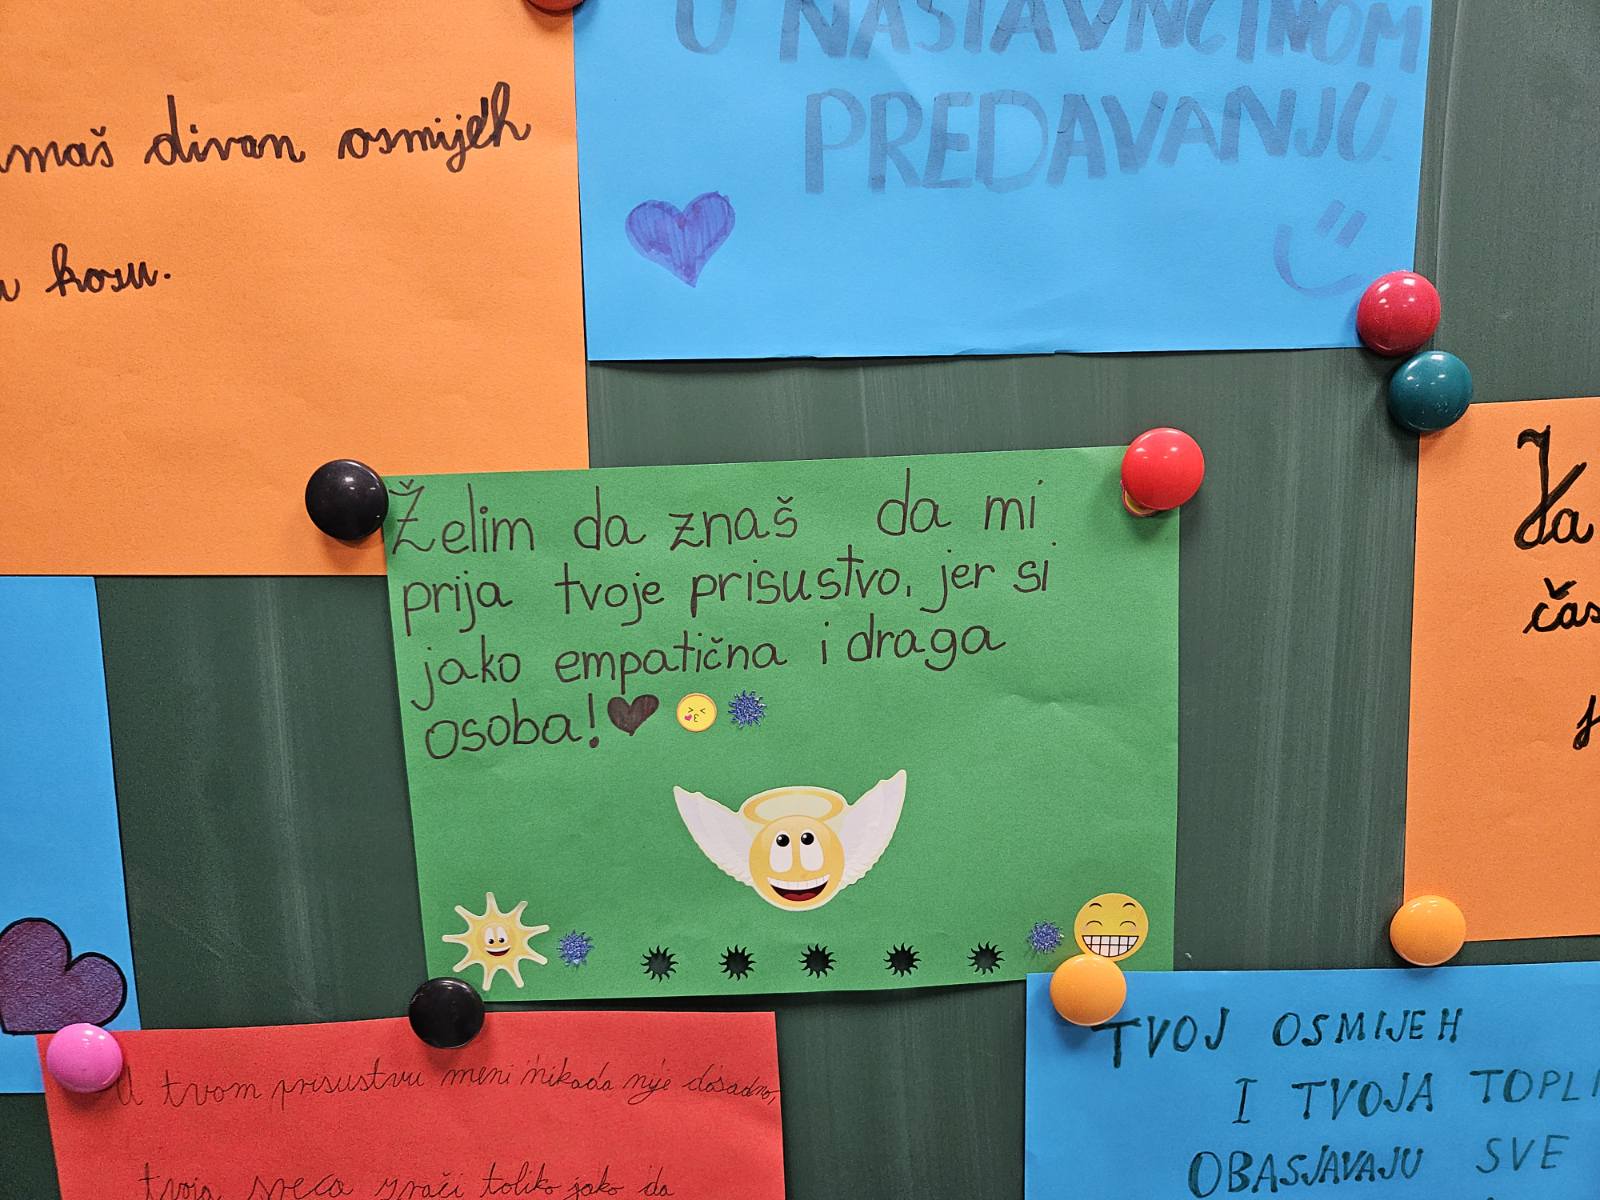 imaš divan osmijeh
u kosu.
U NASTAVNČINOM
PREDAVANJU.
Želim da znaš da mi
prija tvoje prisustvo, jer si
jako empatična i draga
osoba!
Ja
čas
U tvom prisustvu meni nikada nije dosadno,
tvoja sreca zrači toliko jako da
TVOJ OSMIJEH
I TVOJA TOPLI
OBASJAVAJU SVE